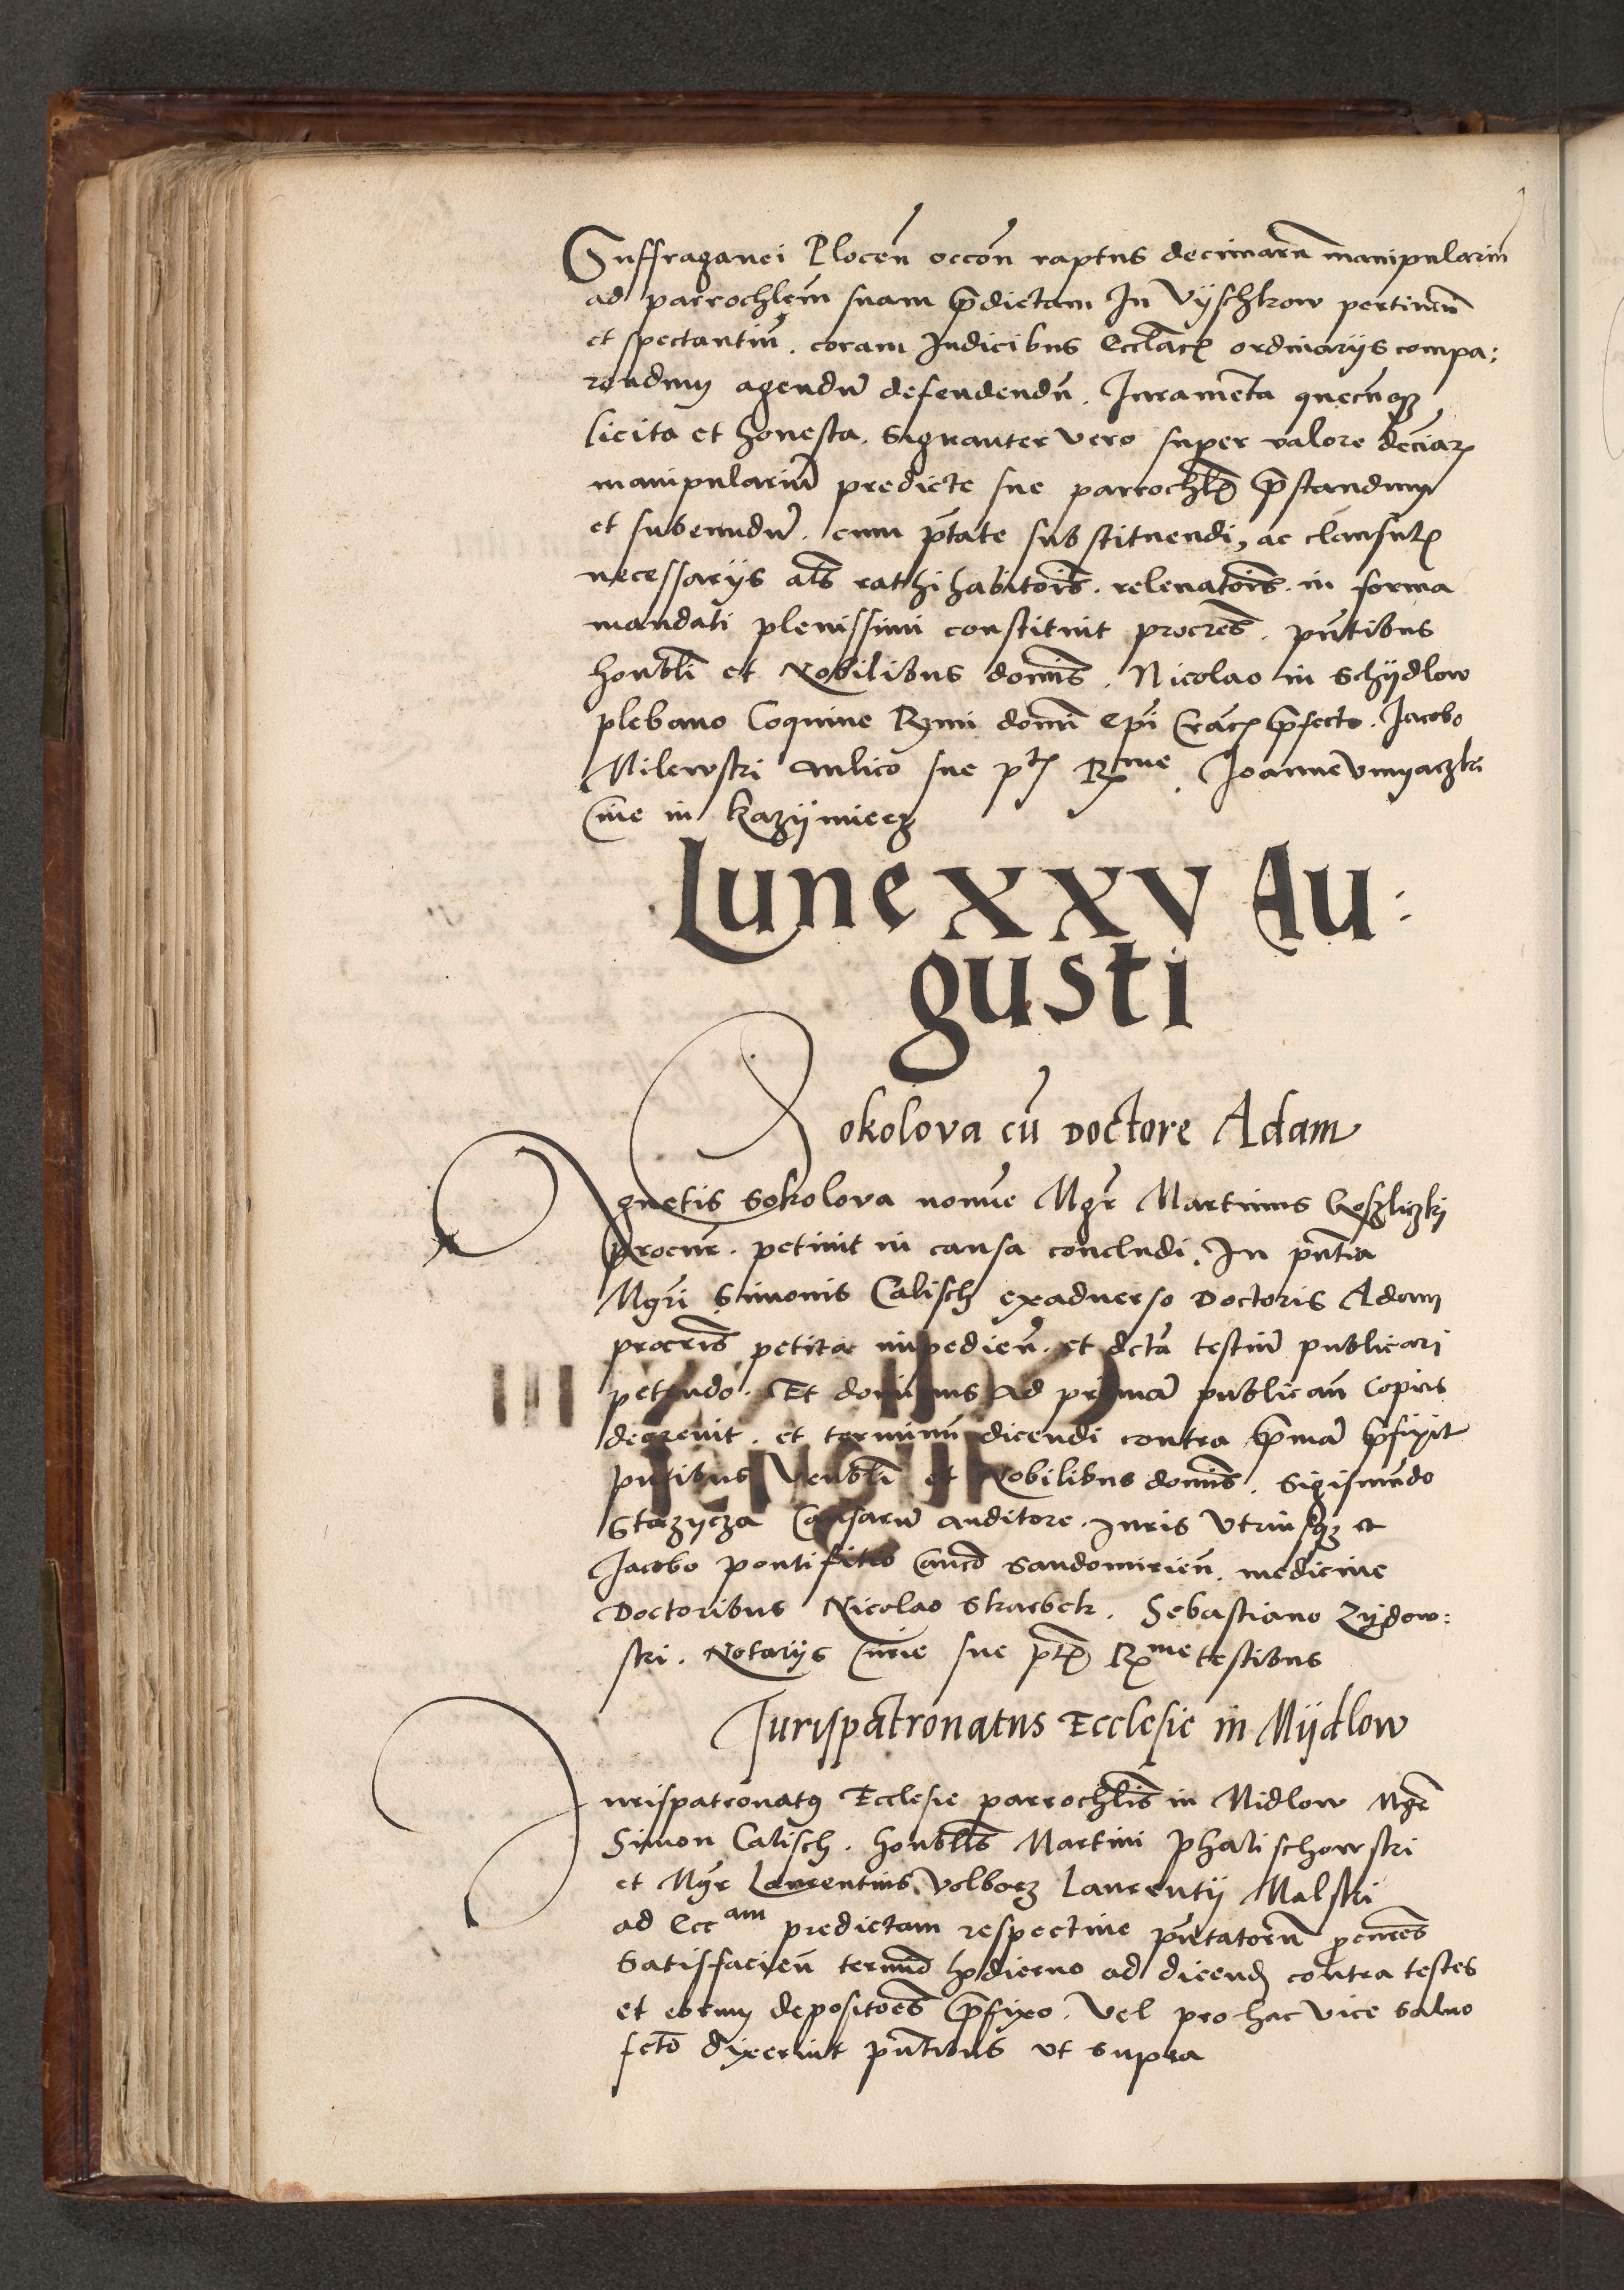 Suffraganei Plocen̄ occōn̄ raptus decimarū manipulariū
ad parrochlem̄ suam p̄dictam In Vyschkow pertineñ
et spectantiū. coram Iudicibus Ecclāꝝ ordinarijs compa:
rendum agendū defendendū. Iuramēta quecūqꝫ
licita et honesta. Signanter vero super valore deciāꝝ
manipulariū predicte sue parrochlꝭ p̄standum
et subeundū. cum p̄tate substituendi, ac clausulꝭ
necessarijs als̄ rathihabitōis. relevatōis. in forma
mandati plenissimi constituit procr̄es. pn̄tibus
honbl̄i et Nobilibus domīs. Nicolao in Schydlow
plebano Coquine Rm̄i domī Epī Cracꝭ p̄fecto. Jacobo
Milewski aulico sue ptꝭ Rme. Joanne Vmyaczki
in Kazijmierz
Lune XXV Au:
gusti
Sokolova cū Doctore Adam
Agnetis Sokolova noīe Mgr̄ Martinus Goszliczki
procur̄. petivit in causa concludi. In pn̄tia
Mgr̄i Simonis Calisch exadverso Doctoris Adam
procr̄is petita impedieñ. et dcta testiū publicari
petendo. Et dominus ad primā publicañ Copias
decrevit. et terminū dicendi contra p̄mā p̄fixit
pn̄tibus Venbl̄i et Nobilibus domīs. Sigismūdo
Stazycza Causarū auditore. Iuris Vtriusqꝫ et
Jacobo pontifitis Canco Sandomirieñ. medicine
Doctoribus Nicolao Skarbek. Sebastiano Zydow:
ski. Notarijs Curie sue ptꝭ Rme testibus
Jurispatronatus Ecclesie in Mijdlow
Jurispatronatꝰ Ecclesie parrochlis̄ in Midlow Mgr̄
Simon Calisch. honblis̄ Martini Phalischowski
et Mgr̄ Laurentius Volborz Laurentij Malski
ad Eccam predictam respective pn̄tatorū procures̄
Satisfacieñ termino hodierno ad dicend contra testes
et eorum depositōes p̄fixo. Vel pro hac vice salvo
fcto dixerint pn̄tibus vt supra